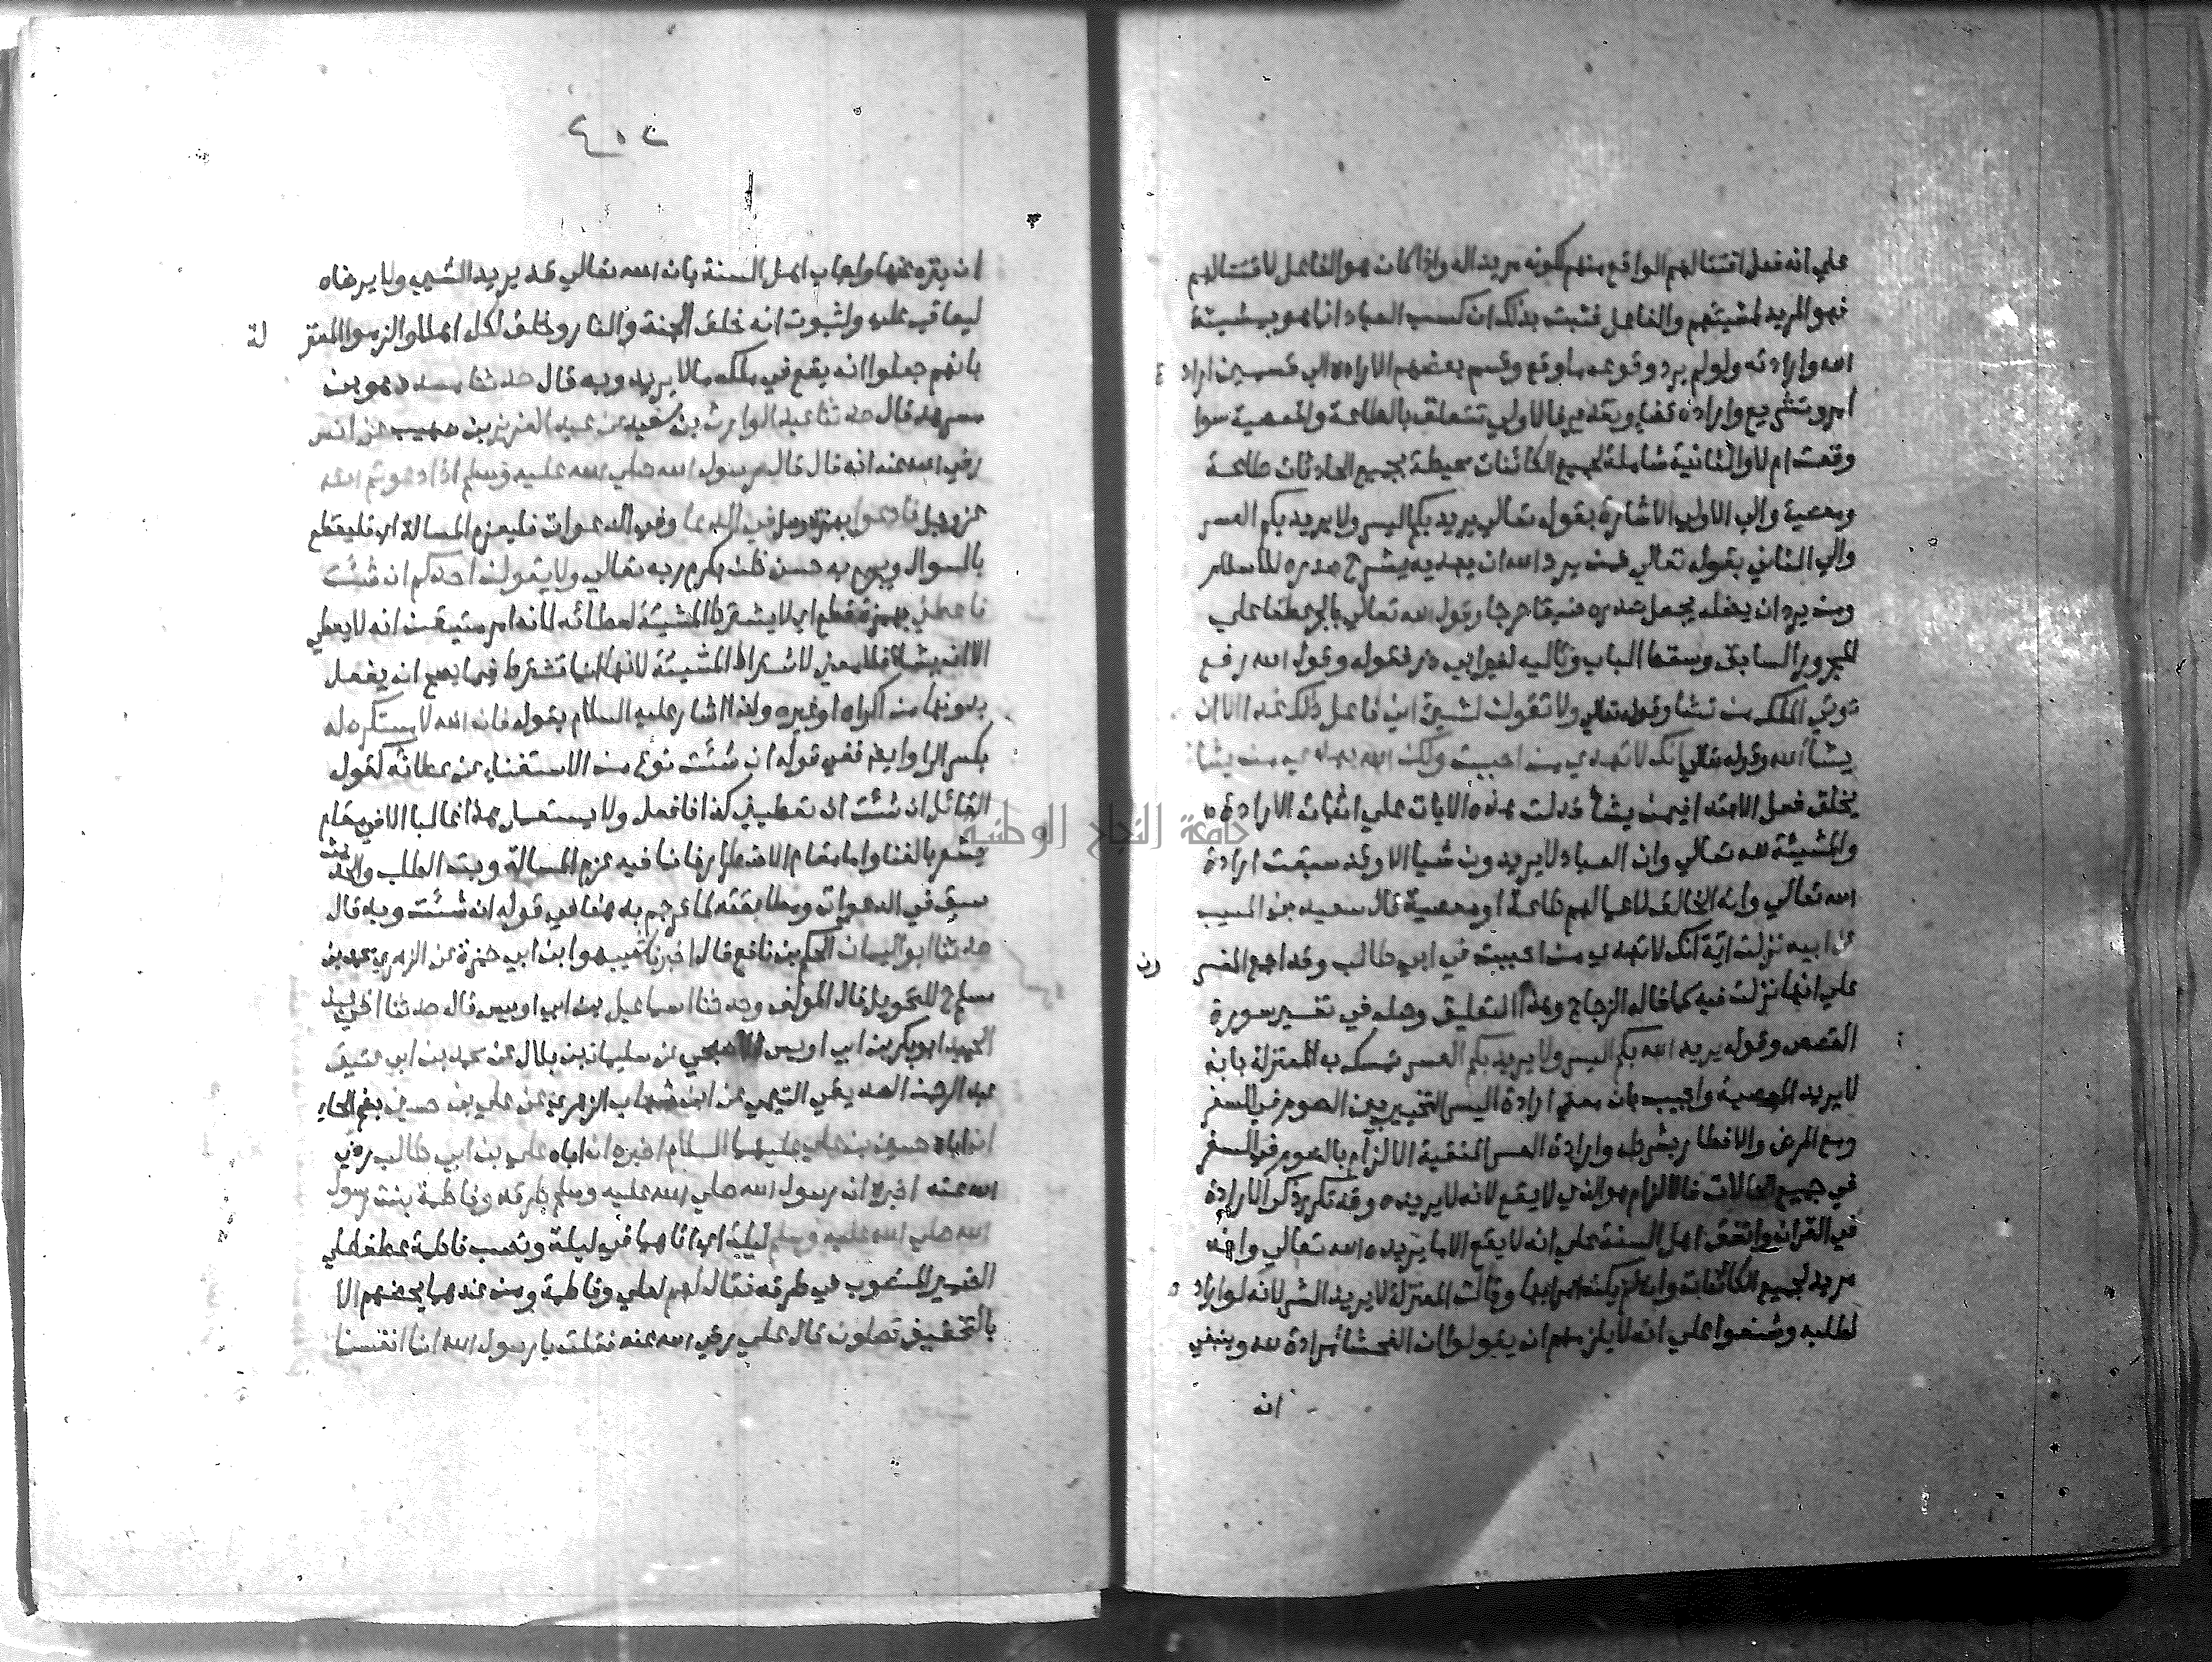 علي انه فعل اقتتالهم الواقع منهم كونه مريدا له واذا كان هو الفاعل لاقتتالهم
فهو المريد لمشيتهم والفاعل فثبت بذلك ان كسب العباد انما هو بمشيئة
الله وارادته ولو لم يرد وقوعه ما وقع وقسم بعضهم الارادة الي قسمين ارادة
امر وتشريع وارادة قضا وتقدير فالاولي تتعلق بالطاعة والمعصية سوا
وقعت ام لا والثانية شاملة لجميع الكائنات محيطة بجميع الحادثات طاعة
ومعصية والي الاولي الاشارة بقوله تعالي يريد بكم اليسر ولا يريد بكم العسر
والي الثاني بقوله تعالي فمن يرد الله ان يهديه يشرح صدره للاسلام
ومن يرد ان يضله يجعل صدره ضيقا حرجا وقول الله تعالي بالجر عطفا علي
المجرور السابق وسقط الباب وتاليه لغير ابي ذر فقوله وقول الله رفع
توتي الملك من تشا وقوله تعالي ولا تقولن لشيئ اني فاعل ذلك غدا الا ان
يشأ الله وقوله تعالي انك لا تهدي من احببت ولكن الله يهدي من يشا
يخلق فعل الاهتدا فيمن يشأ فدلت هذه الايات علي اثبات الارادة
والمشيئة لله تعالي وان العباد لا يريدون شيا الا وقد سبقت ارادة
الله تعالي وانه الخالق لاعمالهم طاعة او معصية قال سعيد بن المسيب
عن ابيه نزلت اية انك لا تهدي من احببت في ابي طالب وقد اجمع المفسرون
علي انها نزلت فيه كما قاله الزجاج وهذا التعليق وصله في تفسير سورة
القصص وقوله يريد الله بكم اليسر ولا يريد بكم العسر تمسك به المعتزلة بانه
لا يريد المعصية واجيب بان معني ارادة اليسر التخيير بين الصوم في السفر
ومع المرض والافطار بشرطه وارادة العسر المنفية الالزام بالصوم في السفر
في جميع الحالات فالالزام هو الذي لا يقع لانه لا يريده وقد تكرر ذكر الارادة
في القران واتفق اهل السنة علي انه لا يقع الا ما يريده الله تعالي وانه
مريد لجميع الكائنات وان لم يكن امرا بها وقالت المعتزلة لا يريد الشر لانه لو اراده
لطلبه وشنعوا علي انه لا يلزمهم ان يقولوا ان الفحشا مرادة لله وينبغي
ان
ان ينزه عنها واجاب اهل السنة بان الله تعالي قد يريد الشيئ ولا يرضاه
ليعاقب عليه ولثبوت انه خلق الجنة والنار وخلق لكل اهلا والزموا المعتزلة
بانهم جعلوا انه يقع في ملكه ما لا يريد وبه قال حدثنا مسدد هو بن
مسرهد قال حدثنا عبد الوارث بن سعيد عن عبد العزيز بن صهيب عن انس
رضي الله عنه انه قال قال رسول الله صلي الله عليه وسلم اذا دعوتم الله
عز وجل فادعوا بهمزة وصل في الدعا وفي الدعوات فليعزم المسالة اي فليقطع
بالسوال ويجزم به حسن ظن بكرم ربه تعالي ولا يقولن احدكم ان شئت
فاعطني بهمزة قطع اي لا يشترط المشيئة لعطائه لانه امر متيقن انه لا يعطي
الا ان يشاء فلا معني لاشتراط المشيئة لانها انما تشترط فيما يصح ان يفعل
بدونها من اكراه او غيره ولذا اشار عليه السلام بقوله فان الله لا مستكره له
بكسر الرا وايضا ففي قوله ان شئت نوع من الاستغناء عن عطائه كقول
القائل ان شئت ان تعطيني كذا فافعل ولا يستعمل هذا غالبا الا في مقام
يشعر بالغنا واما مقام الاضطرار فانما فيه عزم المسالة وبت الطلب والحديث
سبق في الدعوات ومطابقته لما ترجم به هنا في قوله ان شئت وبه قال
حدثنا ابو اليمان الحكم بن نافع قال اخبرنا شعيب هو ابن ابي حمزة عن الزهري محمد بن
مسلم ح للتحويل قال المولف وحدثنا اسماعيل بن ابي اويس قال حدثنا اخي
عبد الحميد ابو بكر بن ابي اويس الاصبحي عن سليمان بن بلال عن محمد بن ابي عتيق
عبد الرحمن الصديقي التيمي عن ابن شهاب الزهري عن علي بن حسين بضم الحاء
ان اباه حسين بن علي عليهما السلام اخبره ان اباه علي بن ابي طالب رضي
الله عنه اخبره ان رسول الله صلي الله عليه وسلم طرقه وفاطمة بنت رسول
الله صلي الله عليه وسلم ليلة اي اتاهما في ليلة ونصب فاطمة عطفا علي
الضمير المنصوب في طرقه فقال لهم لعلي وفاطمة ومن عندهما يحضهم الا
بالتخفيف تصلون قال علي رضي الله عنه فقلت يا رسول الله انما انفسنا
جامعة النجاح الوطنية